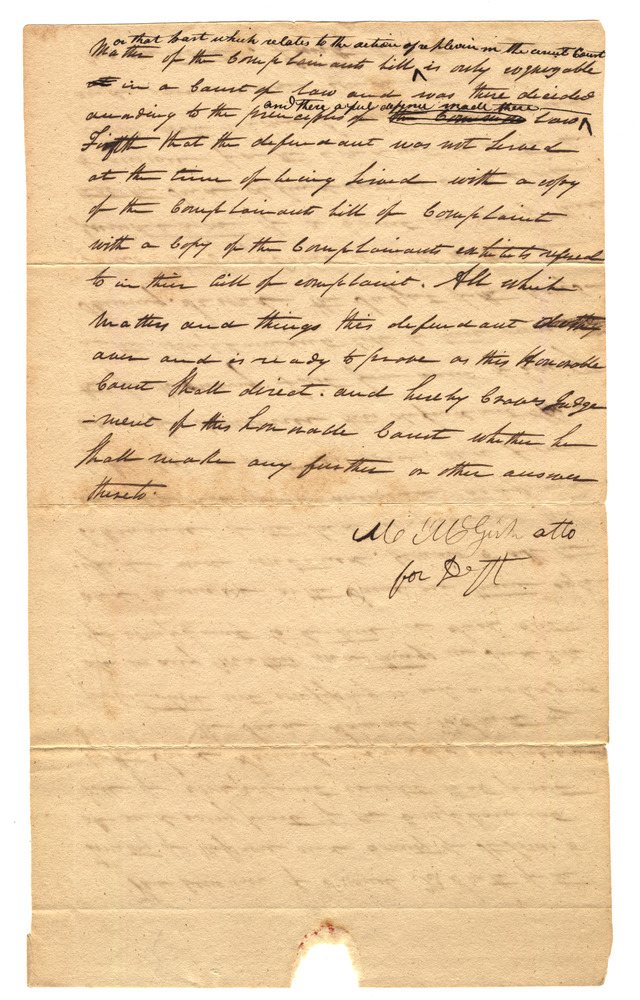 or that part which relates to the action of replevin in the circuit Court
Matter of the Complainants bill ^ is only cognizable
in a Court of law and was there decided
according to the principles of the Common law ^
and there a full defence made there
Fifth that the defendant was not served
at the time of being served with a copy
of the Complainants bill of Complaint
with a Copy of the Complainants exhibits refered
to in their bill of complaint. All which
matters and things this defendant
aver and is ready to prove as this Honorable
Court Shall direct. and hereby Craves Judge
-ment of this honorable Court whether he
Shall make any further or other answer
thereto.
M McGirk atto
for Deft